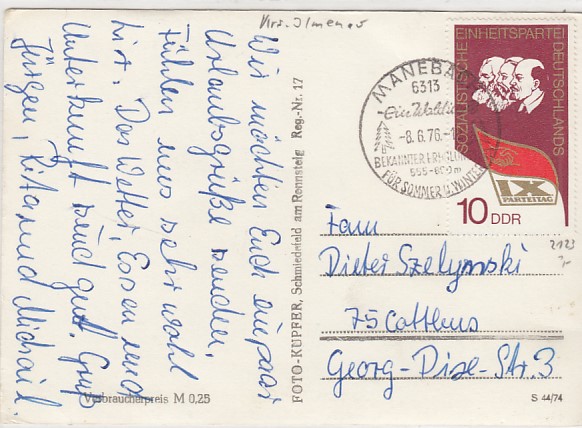 Krs. Ilmenau
Wir möchten Euch ein paar
Urlaubsgrüße senden.
Fühlen uns sehr wohl
hier. Das Wetter, Essen und
Unterkunft sind gut. Grup
Jürgen, Rita und Michail.
Verbraucherpreis M 0,25
FOTO-KUPFER, Schmiedefeld am Rennsteig Reg.-Nr. 17
MANEBACH
6313
-8.6.76-1
BEKANNTER ERHOLUNGS
555-600m
FÜR SOMMER U. WINTER
SOZIALISTISCHE EINHEITSPARTEI DEUTSCHLANDS
IX.
PARTEITAG
10 DDR
2123
Fam
Dieter Szelynski
75 Cottbus
Georg-Dix-Str. 3
S 44/74